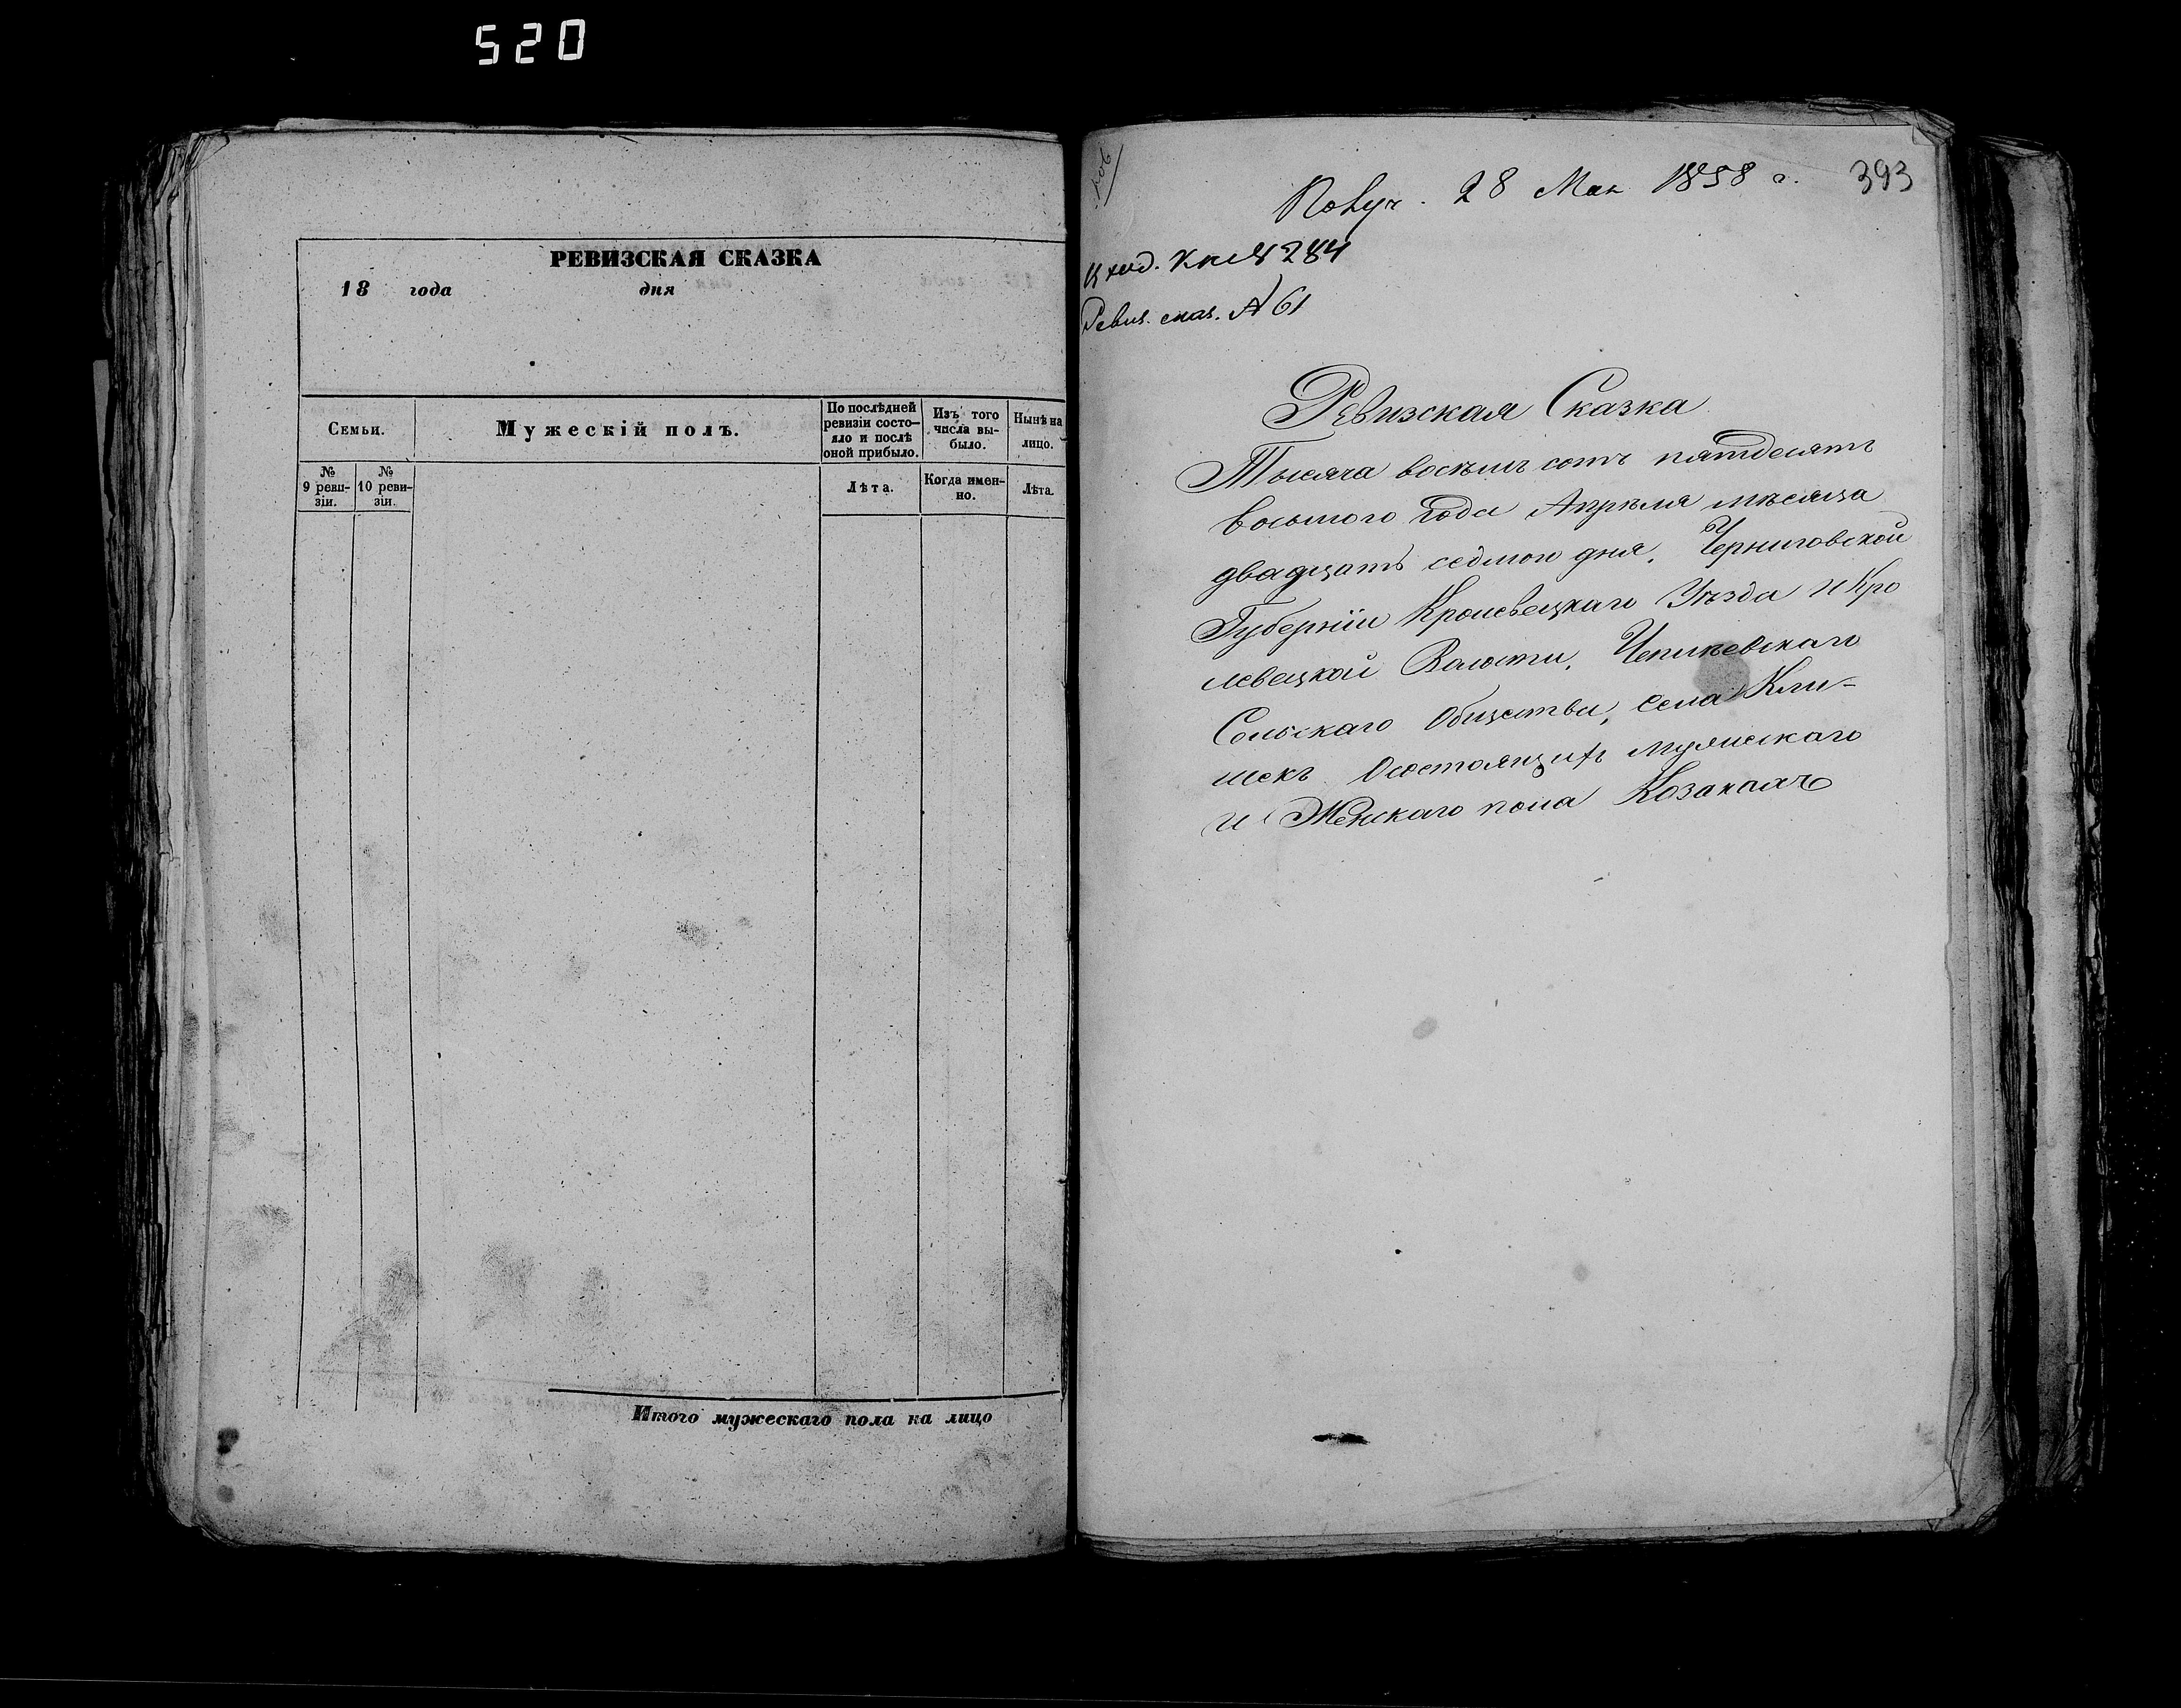 520
РЕВИЗСКАЯ СКАЗКА
18 года дня
Семьи.
Мужескій полъ.
По послѣдней
ревизіи состо-
яло и послѣ
оной прибыло.
Изъ того
числа вы-
было.
Нынѣ на
лицо.
№
9 реви-
зіи.
№
10 реви-
зіи.
Лѣта.
Когда имен-
но.
Лѣта.
Итого мужескаго пола на лицо
Получ. 28 Мая 1858 г. 393
Вход. Кн. № 284
Ревиз. сказ. № 61
Ревизская Сказка
Тысяча восѣмъ сотъ пятдесятъ
восьмого года Апрѣля мѣсяца
двадцать седмого дня, Черниговской
Губерніи Кролевецкаго Уѣзда и Кро
левецкой Волости,
Сельскаго Общества, села Кли-
шекъ О состоящихъ мужескаго
и Женскаго пола Козакахъ